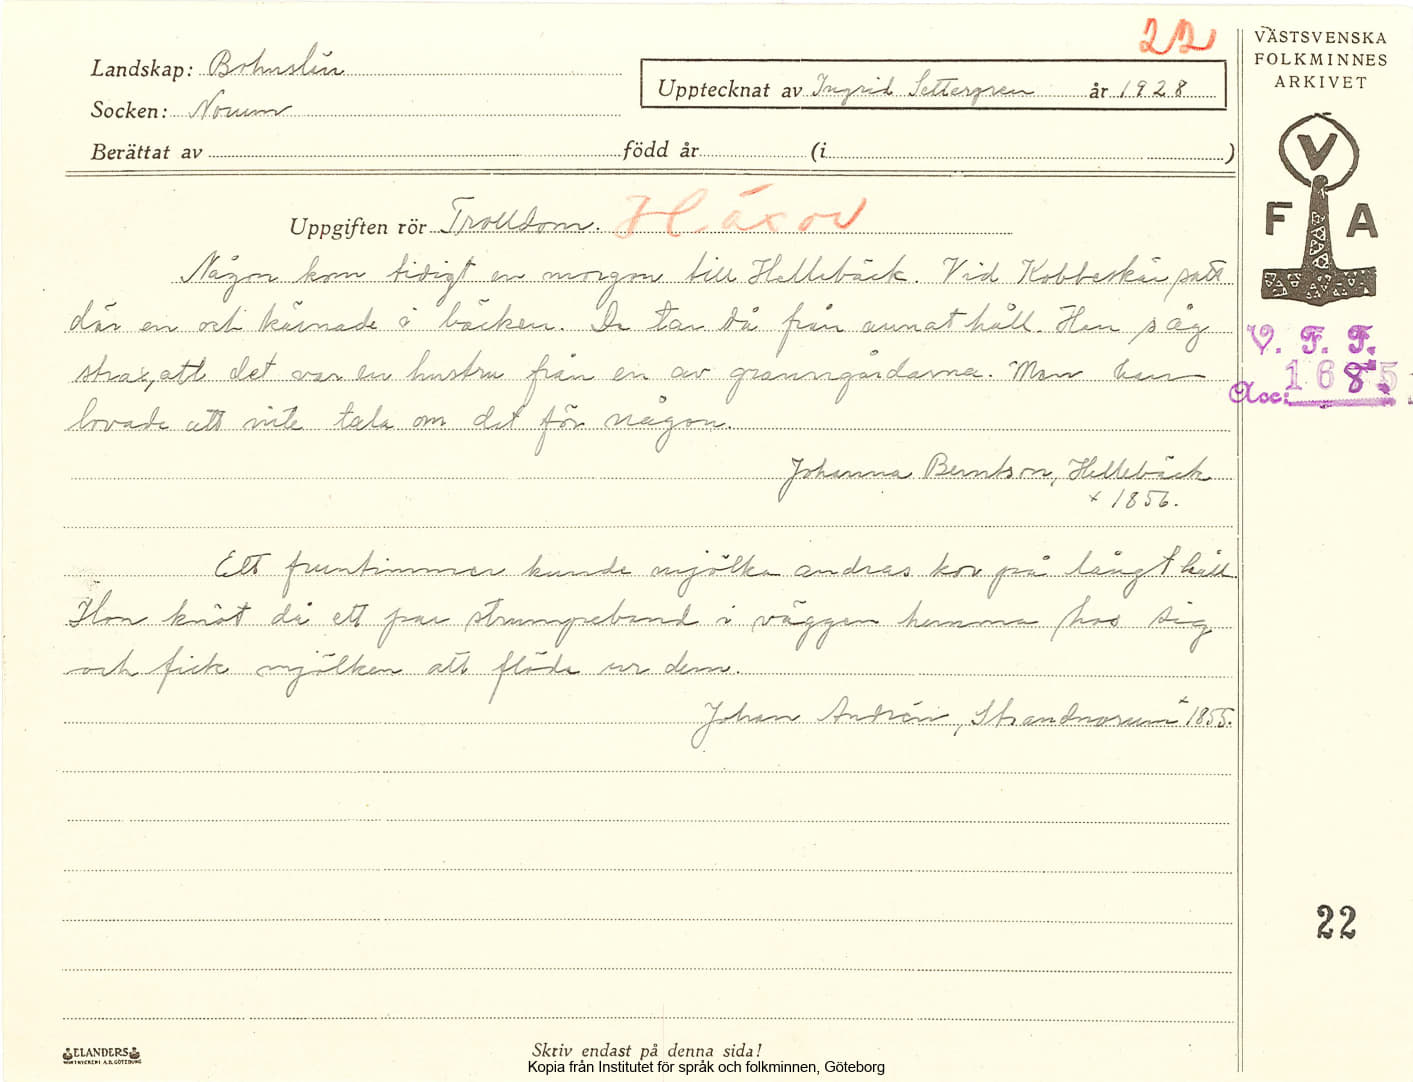 22
VÄSTSVENSKA
FOLKMINNES
ARKIVET
Landskap: Bohuslän
Upptecknat av Ingrid Settergren år 1928
Socken: Norum
Berättat av född år (i )
V
F A
Uppgiften rör Trolldom. Häxor
Någon kom tidigt en morgon till Hellebäck. Vid Kobbeskär satt
där en och kärnade i bäcken. De tar då från annat håll. Han såg
strax, att det var en hustru från en av granngårdarna. Men han
lovade att inte tala om det för någon.
V. F. F.
Acc: 1685
Johanna Berntson, Hellebäck
x 1856.
Ett fruntimmer kunde mjölka andras kor på långt håll.
Hon knöt då ett par strumpeband i väggen hemma hos sig
och fick mjölken att flöda ur dem.
Johan Andrén, Strandnorum x 1855.
22
ELANDERS
Skriv endast på denna sida!
Kopia från Institutet för språk och folkminnen, Göteborg